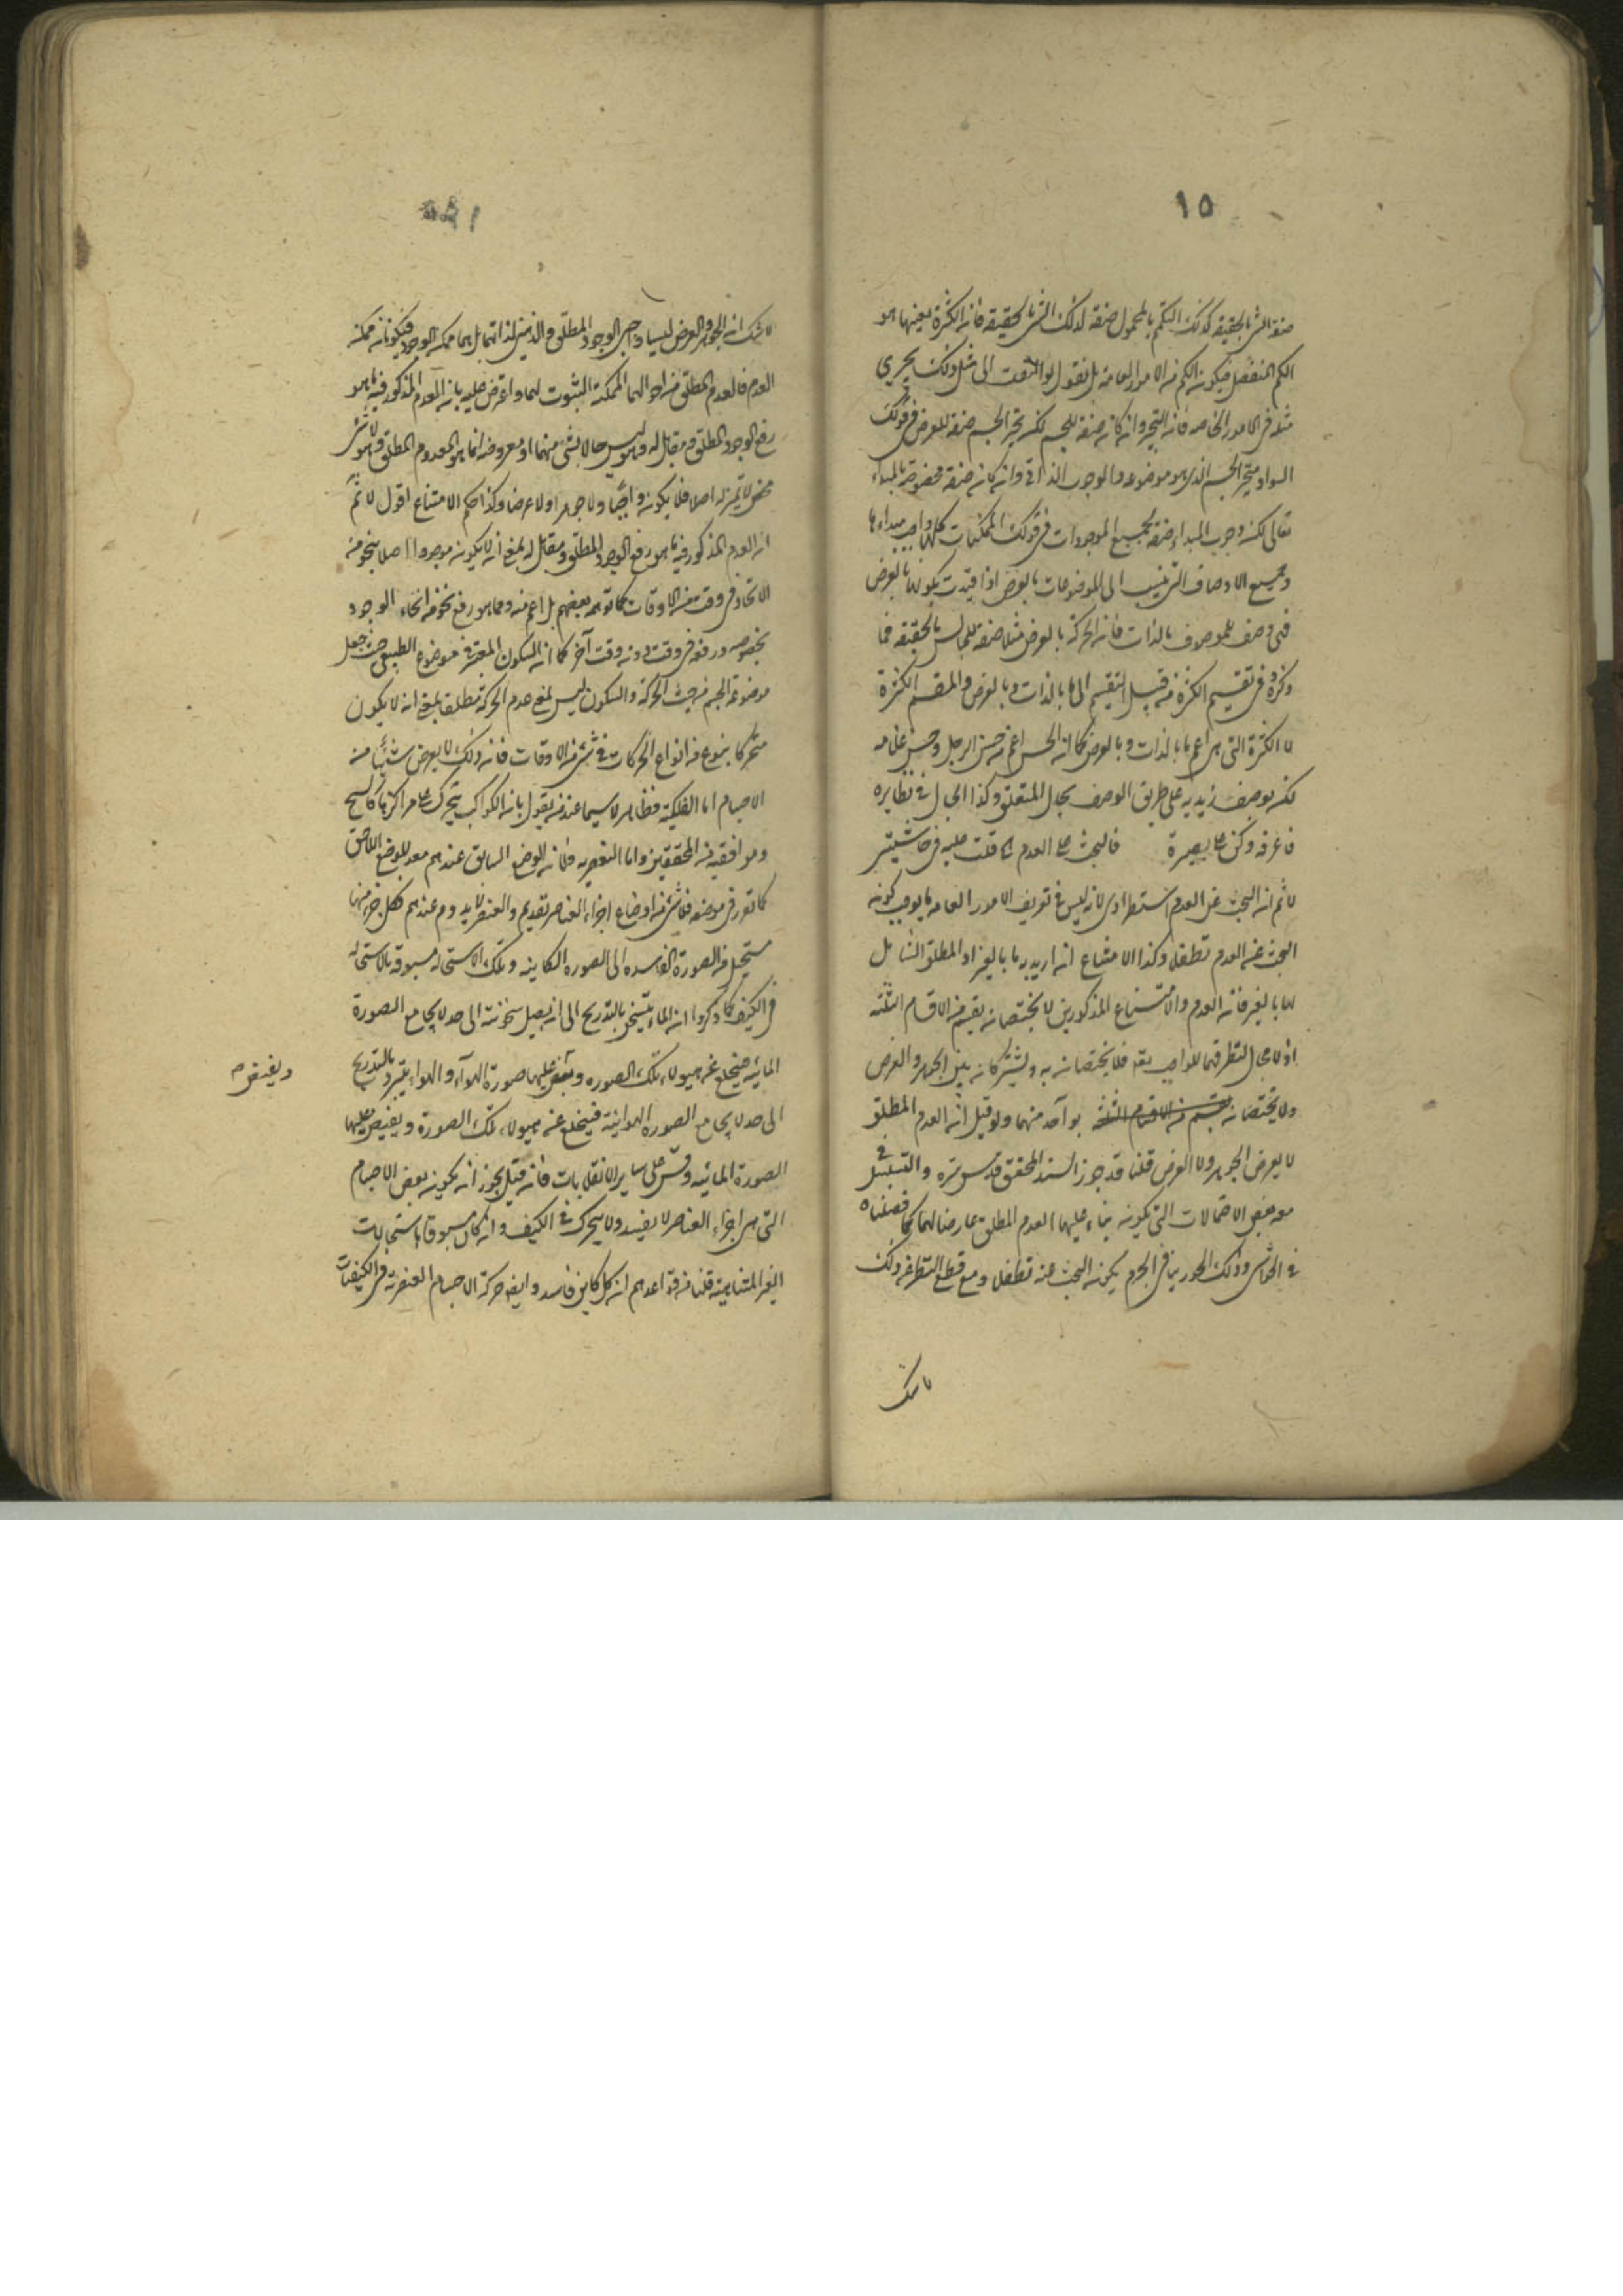 ١٥
صفة الشئ بالحقيقة كذلك التكمم بالمحمول صفة لذلك الشئ بالحقيقة فان الكثرة بعينها هو
الكم المنفصل فيكون الكم من الامور العامة بل نقول لو التفت الى مثل ذلك يجري
مثله في الامور الخاصة فان التحيز وان كان صفة للجسم لكن تحيز الجسم صفة للعرض في قولك
السواد متحيز الجسم الذي هو موضوعه والوجوب الذاتي وان كان صفة مخصوصة بالمبداء
تعالى لكن وجوب المبداء صفة لجميع الموجودات في قولك الممكنات كلها واجب مبداءها
وجميع الاوصاف التي ينسب الى الموضوعات بالعرض اذا قيدت بكونها بالعرض
فهي وصف للموصوف بالذات فان الحركة بالعرض مثلا صفة للجالس بالحقيقة فما
ذكره في تقسيم الكثرة من قبيل التقسيم الى ما بالذات وبالعرض والمقسم الكثرة
لا الكثرة التي هي اعم ما بالذات وبالعرض كما ان الحسن اعم من حسن الرجل وحسن غلامه
لكن يوصف زيد به على طريق الوصف بحال المتعلق وكذا الحال في نظايره
فاعرفه وكن على بصيرة فالبحث على العدم الخ قلت عليه في حاشيتي
لا ثم ان البحث عن العدم استطرادي لانه ليس في تعريف الامور العامة ما يوجب كونه
البحث عن العدم تطفلا وكذا الامتناع ان اريد به ما بالغير او المطلق الشامل
لما بالغير فان العدم والامتناع المذكورين لا يختصان بقسم من الاقسام الثلثة
اذ لا مجال لتطرقهما للواجب تعه فلا يختصان به ويشتركان بين الجوهر والعرض
ولا يختصان بقسم من الاقسام الثلثة بواحد منهما ولو قيل ان العدم المطلق
لا يعرض الجوهر ولا العرض قلنا قد جوز السند المحقق قدس سره والتسلسل في
بعض الاحتمالات التي يكون بناء عليها العدم المطلق عارضا لهما كما فصلناه
في الحواشي وذلك في الجزم يكون البحث عنه تطفلا ومع قطع النظر عن ذلك
لا شك
لا شك ان الجوهر والعرض ليسا واجبي الوجود المطلق والذهني لذاتهما بل هما ممكنه الوجود فيكونان ممكنه
العدم فالعدم المطلق من احوالهما الممكنة الثبوت لهما واعترض عليه بان العدم المذكور فيه ما هو
رفع الوجود المطلق ومقابل له وهو ليس حالا لشئ منهما او معروضه انما هو المعدوم المطلق وهو لا شئ
محض لا تميز له اصلا فلا يكون واجبا ولا جوهرا ولا عرضا وكذا حكم الامتناع اقول لا ثم
ان العدم المذكور فيه ما هو رفع الوجود المطلق ومقابل له بمعنى ان لا يكون موجودا اصلا بنحو من
الانحاء في وقت من الاوقات كما توهمه بعضهم بل اعم منه ومما هو رفع نحو من انحاء الوجود
بخصوصه ورفعه في وقت دون وقت آخر كما ان السكون المعتبر في موضوع الطبيعي حيث جعل
موضوعه الجسم من حيث الحركة والسكون ليس بمعنى عدم الحركة مطلقا بمعنى ان لا يكون
متحركا بنوع من انواع الحركات في شئ من الاوقات فان ذلك لا يعرض شيئا من
الاجسام اما الفلكية فظاهر لا سيما عند من يقول بان الكواكب يتحرك على مراكزها كالشيخ
وموافقيه من المحققين واما العنصرية فلان الوضع السابق عندهم معد للوضع اللاحق
كما تقرر في موضعه فلا شئ من اوضاع اجزاء العناصر بقديم والعنصر لا يدوم عندهم فكل جزء منها
مستحيل من الصورة الفاسدة الى الصورة الكاينه وتلك الاستحاله مسبوقه بالاستحاله
في الكيف كما ذكروا ان الماء يتسخن بالتدريج الى ان يصل سخونته الى حد لا يجامع الصورة
المائيه فينخلع عن هيولاء تلك الصوره ويفيض عليها صورة الهواء والهواء يتبرد بالتدريج
ويفيض
الى حد لا يجامع الصورة الهوائية فينخلع عن هيولاء تلك الصورة ويفيض عليها
الصورة المائيه وقس على ساير الانقلابات فان قيل يجوز ان يكون بعض الاجسام
التي هي اجزاء العناصر لا يفسد ولا يتحرك في الكيف وان كان مسبوقا باستحالات
الغير المتناهية قلنا من قواعدهم ان كل كاين فاسد وايضا حركة الاجسام العنصرية في الكيفيات